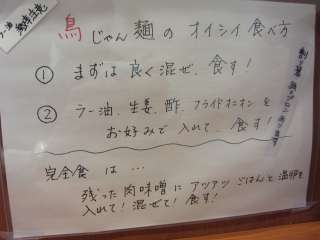 ラー油
鳥じゃん麺のオイシイ食べ方
① まずは良く混ぜ、食す!
② ラー油、生姜、酢、フライドオニオンを
お好みで入れて、食す!
完全食は…
残った肉味噌にアツアツごはんと温卵を
入れて!混ぜて!食す!